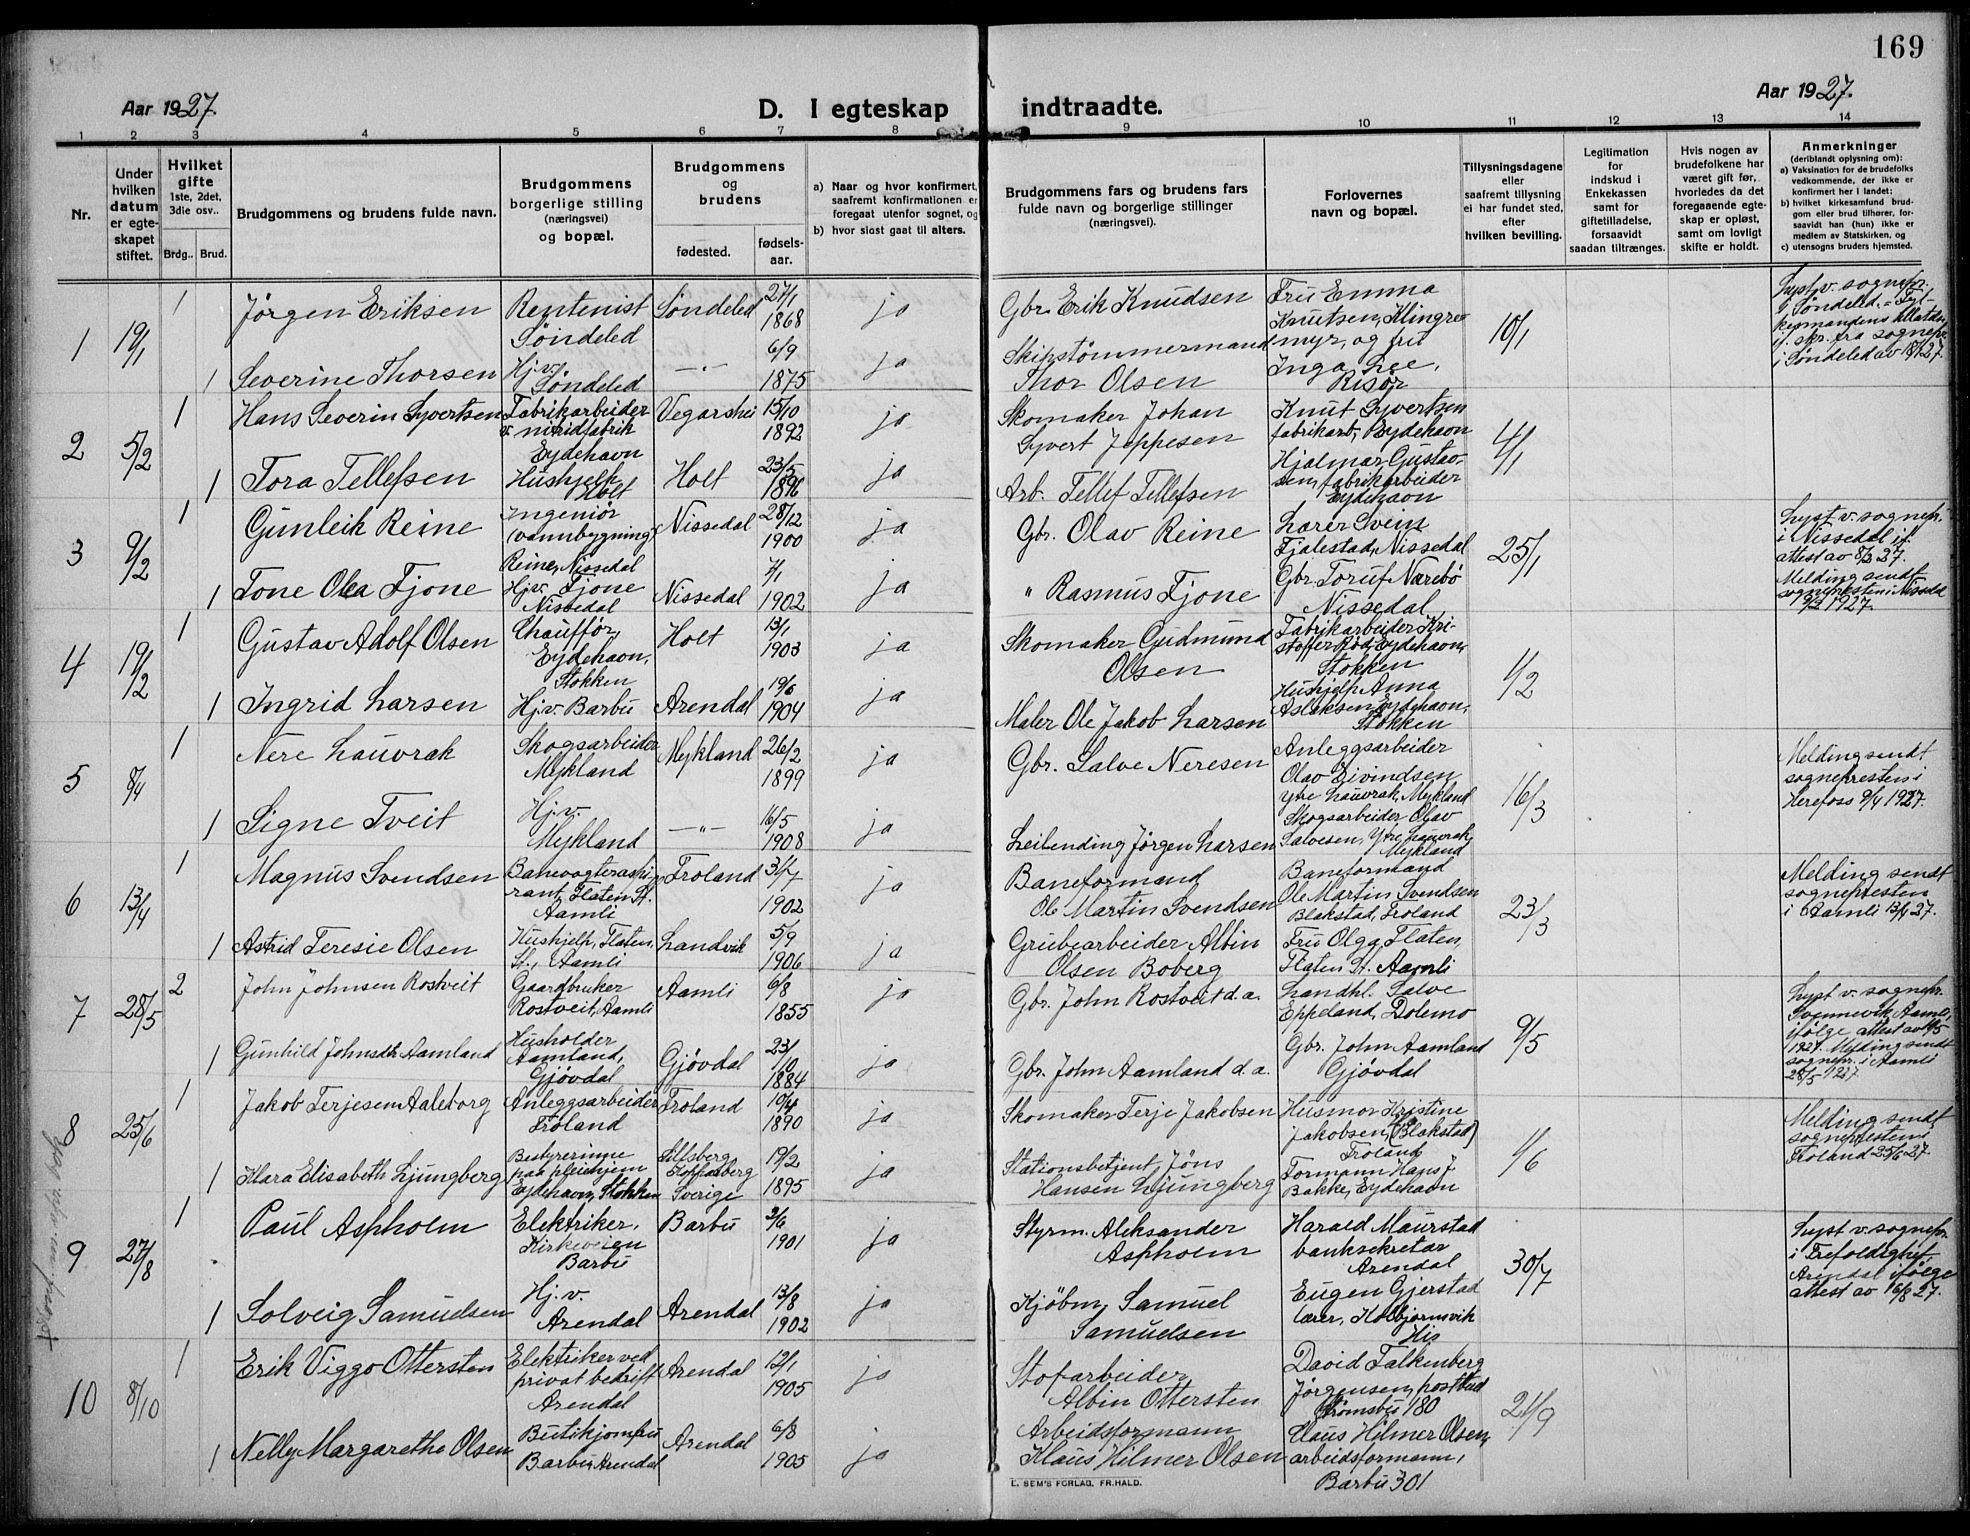 169
Aar 1927.
D. I egteskap indtraadte.
Aar 1927.
1 2 3 4 5 6 7 8 9 10 11 12 13 14
Nr.
Under
hvilken
datum
er egte-
skapet
stiftet.
Hvilket
gifte
1ste, 2det,
3die osv..
Brdg.. Brud.
Brudgommens og brudens fulde navn.
Brudgommens
borgerlige stilling
(næringsvei)
og bopæl.
Brudgommens
og
brudens
fødested.
fødsels-
aar.
a) Naar og hvor konfirmert,
saafremt konfirmationen er
foregaat utenfor sognet, og
b) hvor sidst gaat til alters.
Brudgommens fars og brudens fars
fulde navn og borgerlige stillinger
(næringsvei).
Forlovernes
navn og bopæl.
Tillysningsdagene
eller
saafremt tillysning
ei har fundet sted,
efter
hvilken bevilling.
Legitimation
for
indskud i
Enkekassen
samt for
giftetilladelse,
forsaavidt
saadan tiltrænges.
Hvis nogen av
brudefolkene har
været gift før,
hvorledes da det
foregaaende egte-
skap er opløst,
samt om lovligt
skifte er holdt.
Anmerkninger
(deriblandt oplysning om):
a) Vaksination for de brudefolks
vedkommende, der ikke er
konfirmert her i landet;
b) hvilket kirkesamfund brud-
gom eller brud tilhører, for-
saavidt han (hun) ikke er
medlem av Statskirken, og
c) utensogns bruders hjemsted.
1
19/1
1
Jørgen Eriksen
Rentenist
Søndeled
Søndeled
27/1
1868
ja
Gbr. Erik Knudsen
Fru Emma
Knutsen, Klingre-
myr, og fru
Inga Lee,
Risør
10/1
Lyst v. sognepr.
i Søndeled. = Fyl-
kesmandens tillatelse
if. skr. fra sognepr.
i Søndeled av 18/1 27.
1
Severine Thorsen
Hj.v.
Søndeled
—"—
6/9
1875
ja
Skipstømmermand
Thor Olsen
2
5/2
1
Hans Severin Syvertsen
Fabrikarbeider
v. nitridfabrik
Eydehavn
Vegarshei
15/10
1892
ja
Skomaker Johan
Syvert Jeppesen
Knut Syvertsen
fabrikarb., Eydehavn
Hjalmar Gustav-
sen, fabrikarbeider
Eydehavn
4/1
1
Tora Tellefsen
Hushjelp
Holt
Holt
23/5
1896
ja
Arb. Tellef Tellefsen
3
9/2
1
Gunleik Reine
Ingeniør
(vannbygning)
Reine, Nissedal
Nissedal
28/12
1900
ja
Gbr. Olav Reine
Lærer Svein
Fjalestad, Nissedal
Gbr. Toruf Nærebø
Nissedal
25/1
Lyst v. sognepr.
i Nissedal if.
attest av 8/2 27.
Melding sendt
sognepresten i Nissedal
9/2 1927.
1
Tone Olea Fjone
Hj.v. Fjone
Nissedal
Nissedal
1902
ja
" Rasmus Fjone
4
19/2
1
Gustav Adolf Olsen
Chauffør,
Eydehavn,
Stokken
Holt
13/1
1903
ja
Skomaker Gudmund
Olsen
Fabrikarbeider Kri-
stoffer Rød, Eydehavn,
Stokken
Hushjelp Anna
Aslaksen, Eydehavn,
Stokken
1/2
1
Ingrid Larsen
Hj.v. Barbu
Arendal
1904
ja
Maler Ole Jakob Larsen
5
8/4
1
Nere Lauvrak
Skogsarbeider
Mykland
Mykland
26/2
1899
ja
Gbr. Salve Neresen
Anleggsarbeider
Olav Eivindsen
Ytre Lauvrak, Mykland
Skogsarbeider Olav
Salvesen, Ytre Lauvrak,
Mykland
16/3
Melding sendt
sognepresten i
Herefoss 9/4 1927.
1
Signe Tveit
Hj.v.
Mykland
—"—
16/5
1908
ja
Leilending Jørgen Larsen
6
13/4
1
Magnus Svendsen
Banevogteraspi-
rant, Flaten St.
Aamli
Froland
31/7
1902
ja
Baneformand
Ole Martin Svendsen
Baneformand
Ole Martin Svendsen
Blakstad, Froland
Fru Olga Flaten,
Flaten St. Aamli
23/3
Melding sendt
sognepresten
i Aamli 13/4 27.
1
Astrid Teresie Olsen
Hushjelp, Flaten
St., Aamli
Landvik
5/9
1906
ja
Grubearbeider Albin
Olsen Boberg
7
28/5
2
John Johnsen Rostveit
Gaardbruker
Rostveit, Aamli
Aamli
6/8
1855
ja
Gbr. John Rostveit d.a.
Landhl. Salve
Eppeland, Dølemo
Gbr. John Aamland
Gjøvdal
9/5
Lyst v. sognepr.
Svennevik, Aamli,
ifølge attest av
1927. Melding sendt
sognepr. i Aamli
28/5 1927.
1
Gunhild Johnsdtr. Aamland
Husholder
Aamland,
Gjøvdal
Gjøvdal
23/10
1884
ja
Gbr. John Aamland d.a.
8
25/6
1
Jakob Terjesen Aaleborg
Anleggsarbeider
Froland
Froland
19/4
1890
ja
Skomaker Terje Jakobsen
Husmor Kristine
Jakobsen, (Blakstad)
Froland
Formann Hans J.
Bakke, Eydehavn
1/6
Melding sendt
sognepresten i
Froland 25/6 27.
1
Klara Elisabeth Ljungberg
Bestyrerinne
paa pleiehjem
Eydehavn, Stokken
Silsberg
Kopparberg
Sverige
19/2
1895
ja
Stationsbetjent Jøns
Hansen Ljungberg
9
27/8
1
Paul Aspholm
Elektriker,
Kirkeveien
Barbu
Barbu
2/6
1901
ja
Styrm. Aleksander
Aspholm
Harald Maurstad
banksekretær
Arendal
Eugen Gjerstad
lærer, Kolbjørnsvik
His
30/7
Lyst v. sognepr.
i Trefoldighet,
Arendal ifølge
attest av 16/8 27.
1
Solveig Samuelsen
Hj.v.
Arendal
Arendal
13/8
1902
ja
Kjøbm. Samuel
Samuelsen
10
8/10
1
Erik Viggo Ottersten
Elektriker ved
privat bedrift
Arendal
Arendal
12/1
1905
ja
Stofarbeider
Albin Ottersten
David Falkenberg
Jørgensen, postbud
Strømsbu 180
Claus Hilmer Olsen,
arbeidsformann,
Barbu 301
21/9
1
Nelly Margarethe Olsen
Butikjomfru
Barbu, Arendal
Arendal
6/8
1905
ja
Arbeidsformann
Klaus Hilmer Olsen
L. SEM'S FORLAG, FR.HALD.